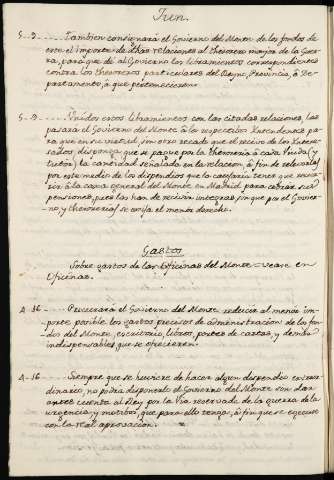 Jun.
5-9 Tambien consignará el Govierno del Monte de los fondos de
este el importe de dichas relaciones al thesorero mayor de la Guer-
ra, para que dé al Govierno los libramientos correspondientes
contra los thesoreros particulares del Reyno, Provincia, ó De-
partamento, á que pertenecieren.
5-9 Unidos estos libramientos con las citadas relaciones, las
pasará el Govierno del Monte á los respectivos Intendentes pa-
ra que en su virtud, sin otro recado que el recivo de los Intere-
sados, disponga que se pague por la thesoreria á cada Viuda (y
tutor) la cantidad señalada en la relacion, á fin de relevarlas
por este medio de los dispendios que la causaria tener que
á la caxa general del Monte en Madrid para cobrar sus
pensiones, pues las han de recivir integras, sin que por el Govier-
no, y thesorerias se exija el menor derecho.
Gastos
Sobre gastos de las Oficinas del Monte = vease en
Oficinas.
4-16 Procurará el Govierno del Monte reducir al menor im-
porte posible los gastos precisos de administracion de los fon-
dos del Monte, escritorio, libros, portes de cartas, y demas
indispensables, que se ofrecieren.
4-16 Siempre que se huviere de hacer algun dispendio extraor-
dinario, no podrá disponerlo el Govierno del Monte sin dar
antes cuenta al Rey por la Via reservada de la guerra de la
urgencia, y motivos que para ello tenga, á fin que se execute
con la real aprovacion.